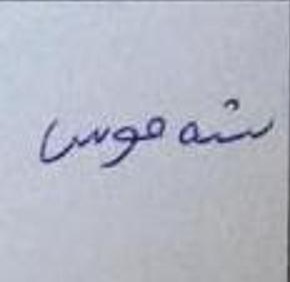 شه موس